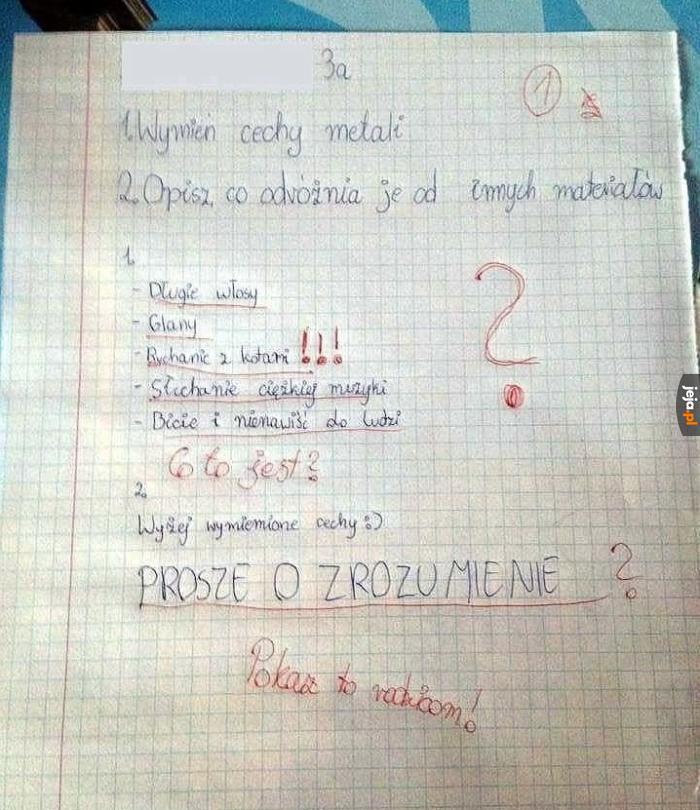 3a
1
1. Wymień cechy metali
2. Opisz, co odróżnia je od innych materiałów
1.
- Długie włosy
- Glany
- Ruchanie z kotami !!!
- Słuchanie ciężkiej muzyki
- Bicie i nienawiść do ludzi
?
Co to jest?
2.
Wyżej wymienione cechy :)
PROSZE O ZROZUMIENIE ?
Pokaż to rodzicom!
jeja.pl